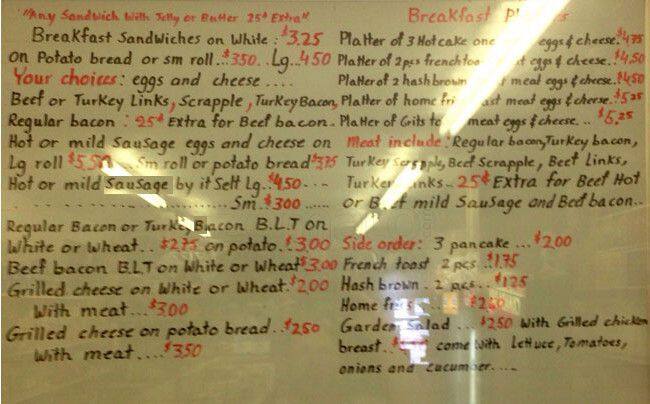 "Any Sandwich With Jelly or Butter 25¢ Extra"
Breakfast Sandwiches on White : $3.25
on Potato bread or sm roll..$350.. Lg...450
Your choices: eggs and cheese ....
Beef or Turkey Links, Scrapple, Turkey Bacon,
Regular bacon : 25¢ Extra for Beef bacon..
Hot or mild Sausage eggs and cheese on
Lg roll $5.50 ... Sm roll or potato bread $375
Hot or mild Sausage by it Self Lg. $4.50 ....
Sm. $3.00 .......
Regular Bacon or Turkey Bacon B.L.T on
White or Wheat.. $2.75 on potato..$.3.00
Beef bacon B.L.T on White or Wheat $3.00
Grilled cheese on White or Wheat.$200
With meat...$3.00
Grilled cheese on potato bread..$250
With meat....$350
Breakfast
Platter of 3 Hotcake one eggs & cheese.$475
Platter of 2 pcs french toast eggs & cheese..$450
Platter of 2 hash brown meat eggs & cheese.$450
Platter of home meat eggs & cheese.$5.25
Platter of Grits meat eggs & cheese. .. $5.25
Meat include: Regular bacon, Turkey bacon,
Turkey Scrapple, Beef Scrapple, Beef Links,
Turkey Links.. 25¢ Extra for Beef Hot
or Beef mild Sausage and Beef bacon..
Side order: 3 pancake ...$200
French toast 2 pcs ..$1.75
Hash brown . 2 pcs...$125
Home fries ...
Garden Salad ... $250 With Grilled chicken
breast.. come with Lettuce, Tomatoes,
onions and cucumber....